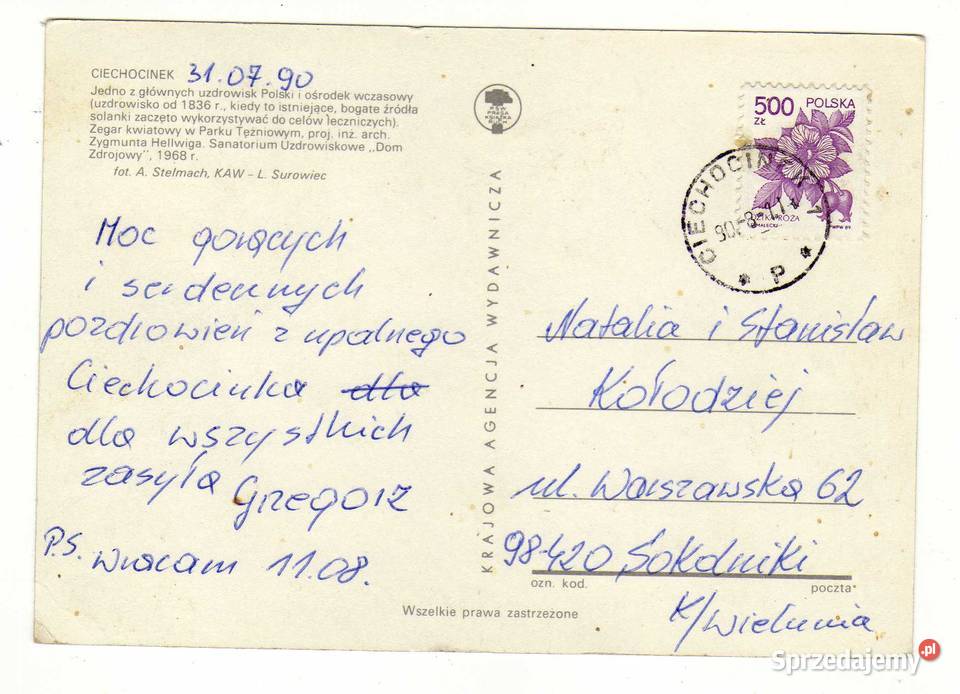 CIECHOCINEK 31.07.90
Jedno z głównych uzdrowisk Polski i ośrodek wczasowy
(uzdrowisko od 1836 r., kiedy to istniejące, bogate źródła
solanki zaczęto wykorzystywać do celów leczniczych).
Zegar kwiatowy w Parku Tężniowym, proj. inż. arch.
Zygmunta Hellwiga. Sanatorium Uzdrowiskowe ,,Dom
Zdrojowy", 1968 r.
fot. A. Stelmach, KAW – L. Surowiec
Moc gorących
i serdecznych
pozdrowień z upalnego
Ciechocinka dla
dla wszystkich
zasyła
Grzegorz
P.S. Wracam 11.08.
RSW
PRASA
KSIĄŻKA
RUCH
KRAJOWA AGENCJA WYDAWNICZA
500 POLSKA
ZŁ
DZIKA RÓŻA
CIECHOCINEK
P
Natalia i Stanisław
Kołodziej
ul. Warszawska 62
98-420 Sokolniki
ozn. kod. poczta
k/Wielunia
Wszelkie prawa zastrzeżone
Sprzedajemy.pl